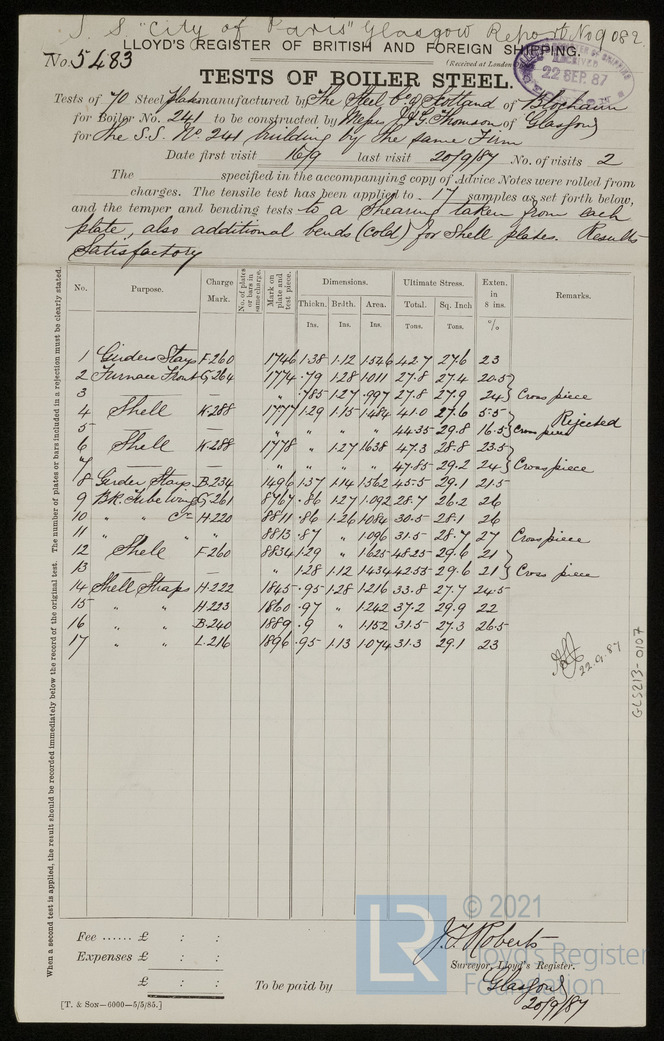 S.S. "City of Paris" Glasgow Report No 9082
LLOYD'S REGISTER OF BRITISH AND FOREIGN SHIPPING.
No. 5483
(Received at London
22 SEP. 87
TESTS OF BOILER STEEL.
Tests of 70 Steel Plates manufactured by The Steel Co. of Scotland of Blochairn
for Boiler No. 241 to be constructed by Messrs J. & G. Thomson of Glasgow
for the S.S. No. 241 building by the same Firm
Date first visit 16/9 last visit 20/9/87 No. of visits 2
The specified in the accompanying copy of Advice Notes were rolled from
charges. The tensile test has been applied to 17 samples as set forth below,
and the temper and bending tests to a Shearing taken from each
plate, also additional bends (cold) for Shell plates. Results
Satisfactory
No. Purpose. Charge Mark. No. of plates or bars in same charge. Mark on plate and test piece. Dimensions. Ultimate Stress. Exten. in 8 ins. Remarks.
Thickn. Brdth. Area. Total. Sq. Inch
Ins. Ins. Ins. Tons. Tons. %
1 Girders Stays F.260 1746 1.38 1.12 1.546 42.7 27.6 23
2 Furnace Front G.264 1774 .79 1.28 1.011 27.8 27.4 20.5
3 — — .785 1.27 .997 27.8 27.9 24 } Cross piece
4 Shell K.288 1777 1.29 1.15 1.484 41.0 27.6 5.5 Rejected
5 — — " " " " 44.35 29.8 16.5 } Cross piece
6 Shell K.288 1778 " 1.27 1.638 47.3 28.8 23.5
7 — — " " " " 47.85 29.2 24 } Cross piece
8 Girder Stays B.234 1496 1.37 1.14 1.562 45.5 29.1 21.5
9 Bk. Tube Wing G.261 8767 .86 1.27 1.092 28.7 26.2 26
10 " " Ce H.220 8811 .86 1.26 1.084 30.5 28.1 26
11 " " " " 8813 .87 " 1.096 31.5 28.7 27 Cross piece
12 Shell F.260 8834 1.29 " 1.625 48.25 29.6 21
13 — — " 1.28 1.12 1.434 42.55 29.6 21 } Cross piece
14 Shell Straps H.222 1845 .95 1.28 1.216 33.8 27.7 24.5
15 " " H.223 1860 .97 " 1.242 37.2 29.9 22
16 " " B.240 1889 .9 " 1.152 31.5 27.3 26.5
17 " " L.216 1896 .95 1.13 1.074 31.3 29.1 23
22.9.87
GLS213-0107
When a second test is applied, the result should be recorded immediately below the record of the original test. The number of plates or bars included in a rejection must be clearly stated.
Fee ...... £ : :
Expenses £ : :
£ : :
To be paid by
J.F. Roberts
Surveyor, Lloyd's Register.
Glasgow
20/9/87
[T. & Son—6000—5/5/85.]
LR
© 2021
Lloyd's Register
Foundation